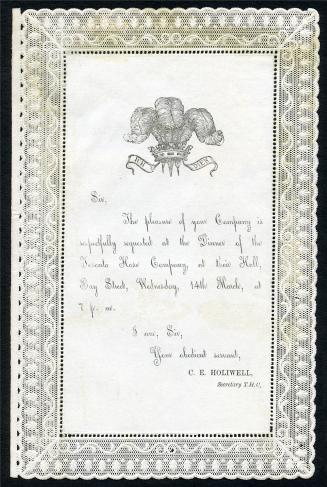 ICH DIEN
Sir,
The pleasure of your Company is
respectfully requested at the Dinner of the
Toronto Hose Company, at their Hall,
Bay Street, Wednesday, 14th March, at
7 p. m.
I am, Sir,
Your obedient servant,
C. E. HOLIWELL,
Secretary T. H. C,